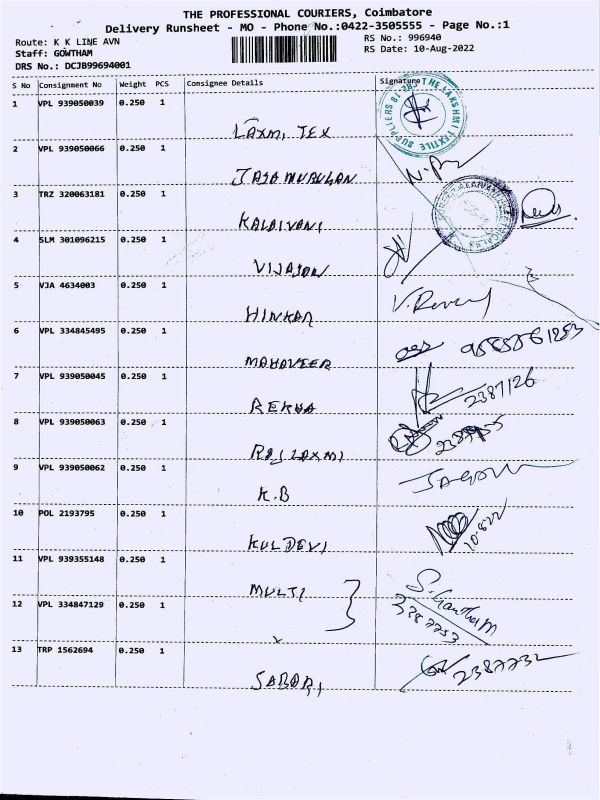 THE PROFESSIONAL COURIERS, Coimbatore
Delivery Runsheet - MO - Phone No.:0422-3505555 - Page No.:1
Route: K K LINE AVN
RS No.: 996940
Staff: GOWTHAM
RS Date: 10-Aug-2022
DRS No.: DCJB99694001
S No Consignment No Weight PCS Consignee Details Signature
1 VPL 939050039 0.250 1
LAXMI TEX
2 VPL 939050066 0.250 1
JAJAMURUGAN
3 TRZ 320063181 0.250 1
KALAIVANI
4 SLM 301096215 0.250 1
VIJAYON
5 VJA 4634003 0.250 1
HINKAR
6 VPL 334845495 0.250 1
MAHAVEER
7 VPL 939050045 0.250 1
REKHA 2387126
8 VPL 939050063 0.250 1
RAJ LAXMI
9 VPL 939050062 0.250 1
K.B
10 POL 2193795 0.250 1
KULDEVI 10.8.22
11 VPL 939355148 0.250 1
MULTI
12 VPL 334847129 0.250 1
2387753
13 TRP 1562694 0.250 1
SABARI 2387732